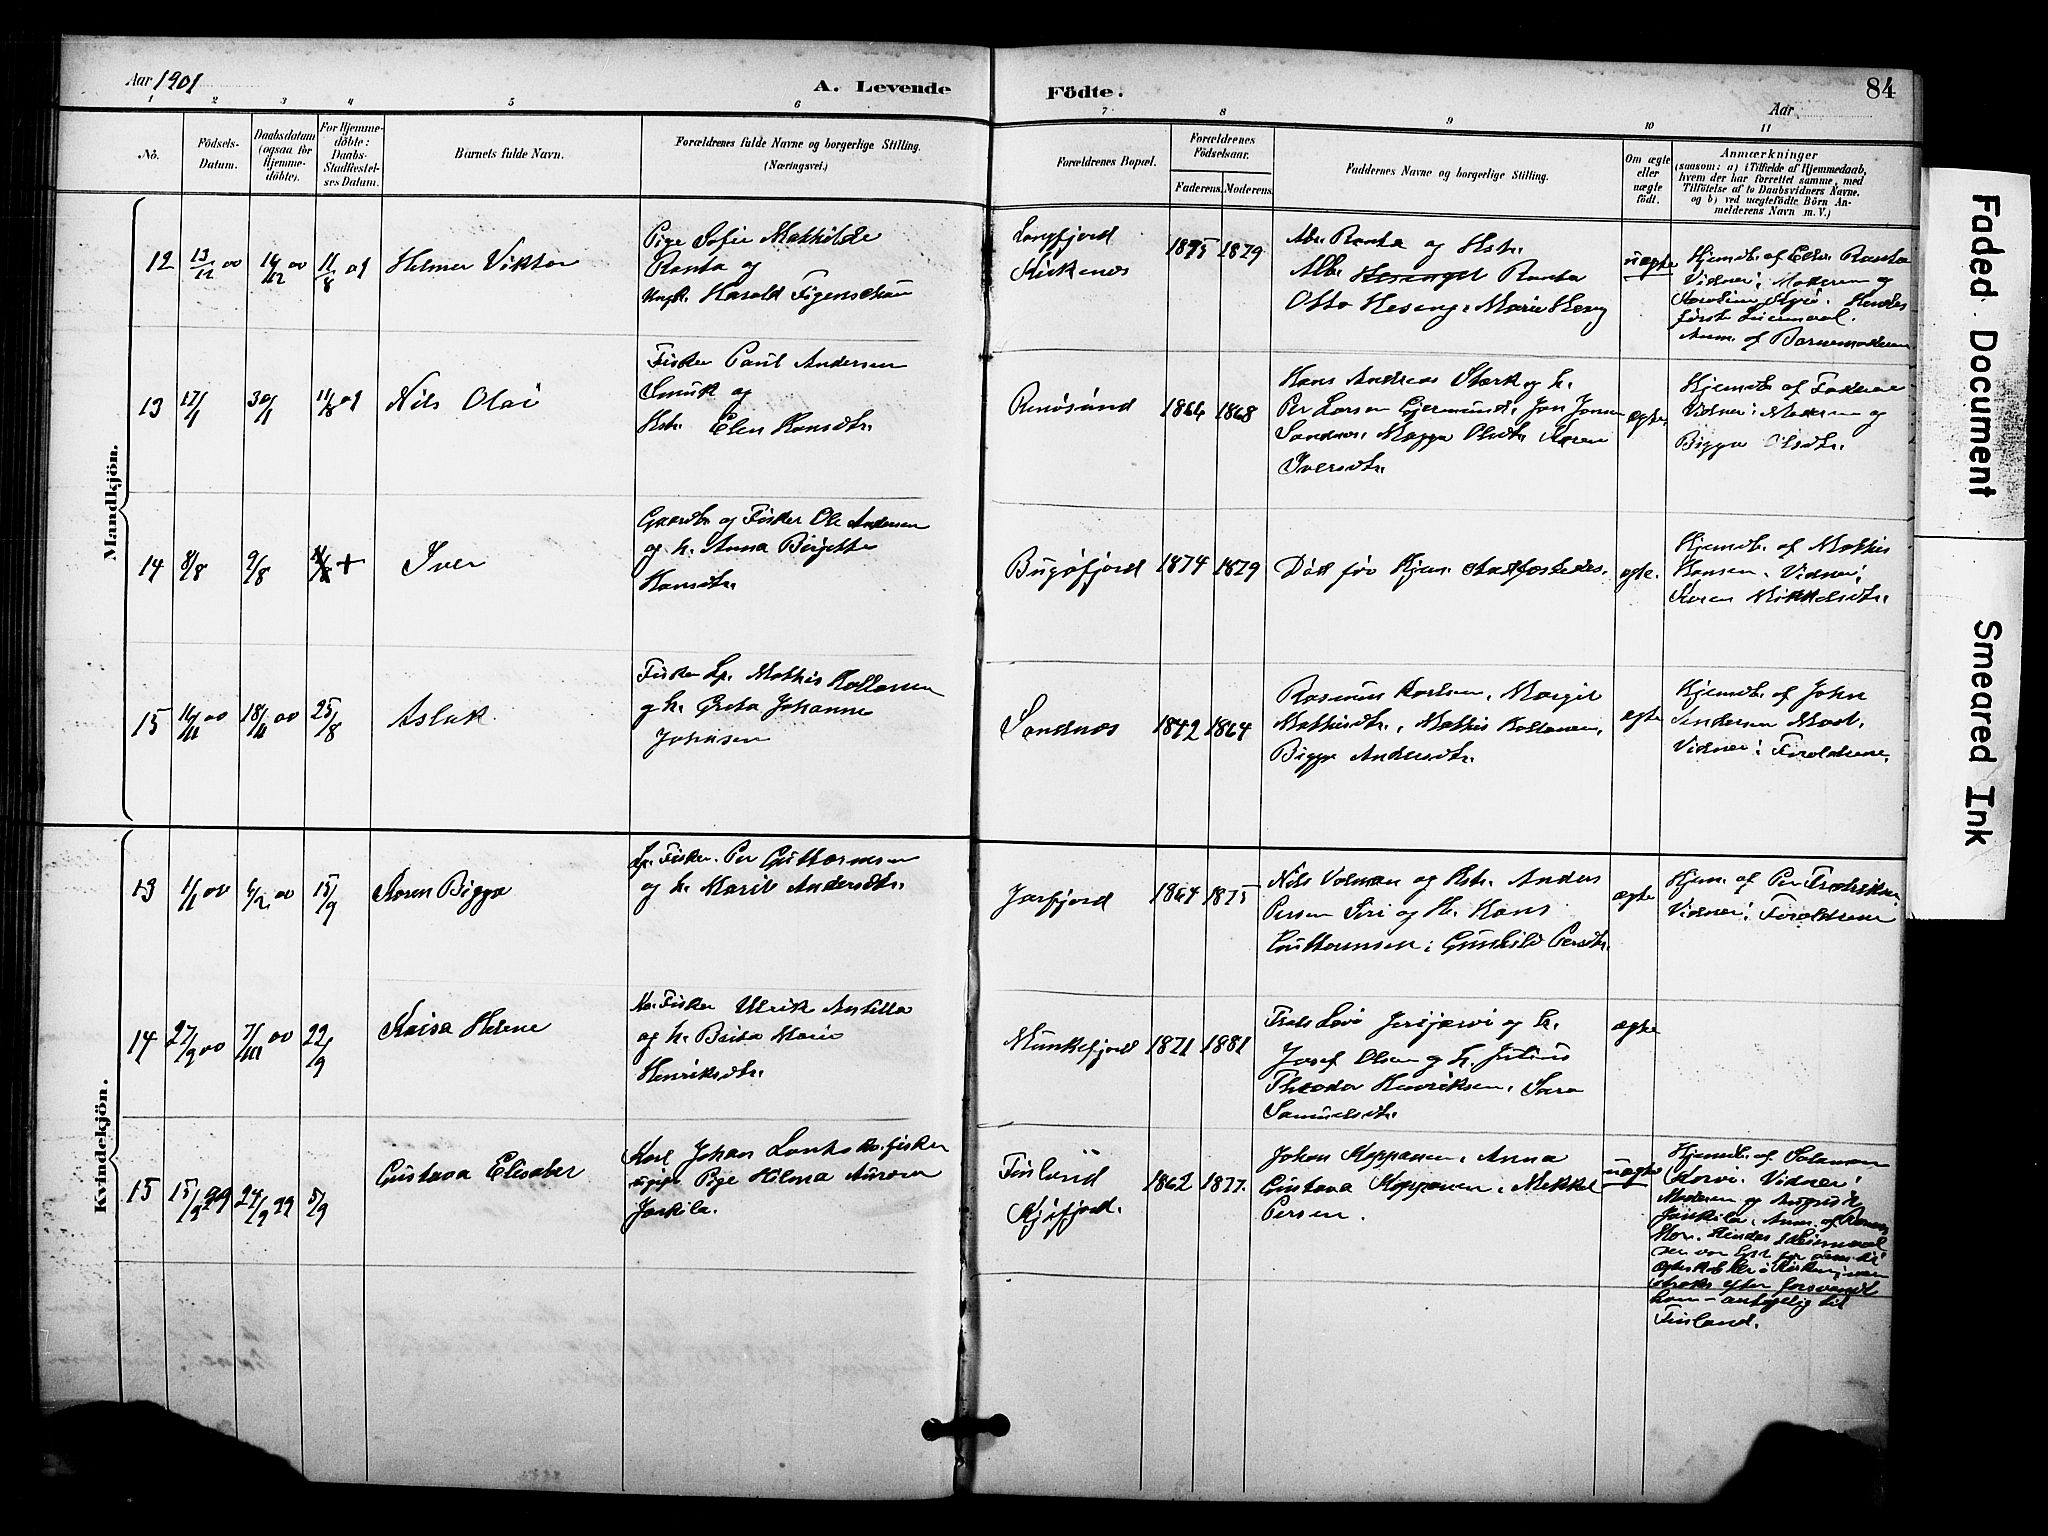 Aar 1901
A. Levende
Födte.
Aar
84
1 2 3 4 5 6 7 8 9 10 11
No.
Födsels-
Datum.
Daabsdatum
(ogsaa for
Hjemme-
döbte).
For Hjemme-
döbte:
Daabs-
Stadfæstel-
ses Datum.
Barnets fulde Navn.
Forældrenes fulde Navne og borgerlige Stilling.
(Næringsvei.)
Forældrenes Bopæl.
Forældrenes
Födselsaar.
Faderens. Moderens.
Faddernes Navne og borgerlige Stilling.
Om ægte
eller
uægte
födt.
Anmærkninger
(saasom: a) i Tilfælde af Hjemmedaab,
hvem der har forrettet samme, med
Tilföielse af to Daabsvidners Navne.
og b) ved uægtefödte Börn An-
melderens Navn m. V.)
Mandkjön.
12 13/12 00 16/12 00 11/8 01 Helmer Viktor
Pige Sofie Mathilde
Ranta og
Ungk. Harald Figenschau
Langfjord
Kirkenes
1875 1879
Abr. Ranta og Hstr.
Alb. Ranta
Otto Heseng, Marie Heseng
uægte
Hjemdt. af Ranta
Vidner: Moderen og
første Leiermaal.
Anm. af Barnemoderen
13 17/1 30/1 11/8 01 Nils Olai
Fisker Paul Andersen
Smuk og
Hstr. Elen Hansdtr.
Renøsund
1864 1868
Hans Andreas Stærk og h.
Per Larsen Gjermund, Jon Jonsen
Sandnes, Magga Olsdtr. Karen
Iversdtr.
ægte.
Hjemdt. af Faderen
Vidner: Moderen og
Bigga Olsdtr.
14 8/8 9/8 + Iver
Gaardbr og Fisker Ole Andersen
og h. Anna Birgitte
Hansdtr.
Bugøfjord
1874 1879
Død før Hjem. stadfæstedes.
ægte.
Hjemdt. af Mathis
Hansen. Vidner:
Karen Mikkelsdtr.
15 16/11 00 18/11 00 25/8 Aslak
Fisker Lp. Mathis
og h. Greta Johanne
Johnsen
Sandnæs
1842 1864
Rasmus Karlsen, Margit
Mathisdtr., Mathis
Bigga Andersdtr.
ægte
Hjemdt. af John
Vidner: Forældrene.
Kvindekjön.
13 1/1 00 6/2 00 15/9 Karen Bigga
Lp. Fisker. Per Guttormsen
og h. Marit Andersdtr.
Jarfjord
1864 1875
Nils og Hstr. Anders
Persen Siri og H. Hans
Guttormsen, Gunhild Persdtr.
ægte
Hjem. af Per Fredriksen.
Vidner: Forældrene
14 27/9 00 7/10 00 22/9 Kaisa Helene
Kv. Fisker Ulrik Anttilla
og h. Brita Marie
Henriksdtr.
Munkefjord
1871 1881
Jerijærvi og h.
Josef Olsen og h. Julius
Theodor Henriksen, Sara
Samuelsdtr.
ægte
15 15/9 99 24/9 99 5/9 Gustava Elisabet
Karl Johan Kv. fisker
ugift Pige Hilma Aurora
Jaskila.
Finland
Kjøfjord.
1862 1877.
Johan Koppanen, Anna
Gustava Koppanen, Mikkel
Persen.
uægte
Hjemdt. af Salamon
Korvi. Vidner:
Moderen og
Jaskila, Anm. af
Mor. Hendes Leiermaal
strax efter forsvandt
han – antagelig til
Finland.
Faded Document
Smeared Ink